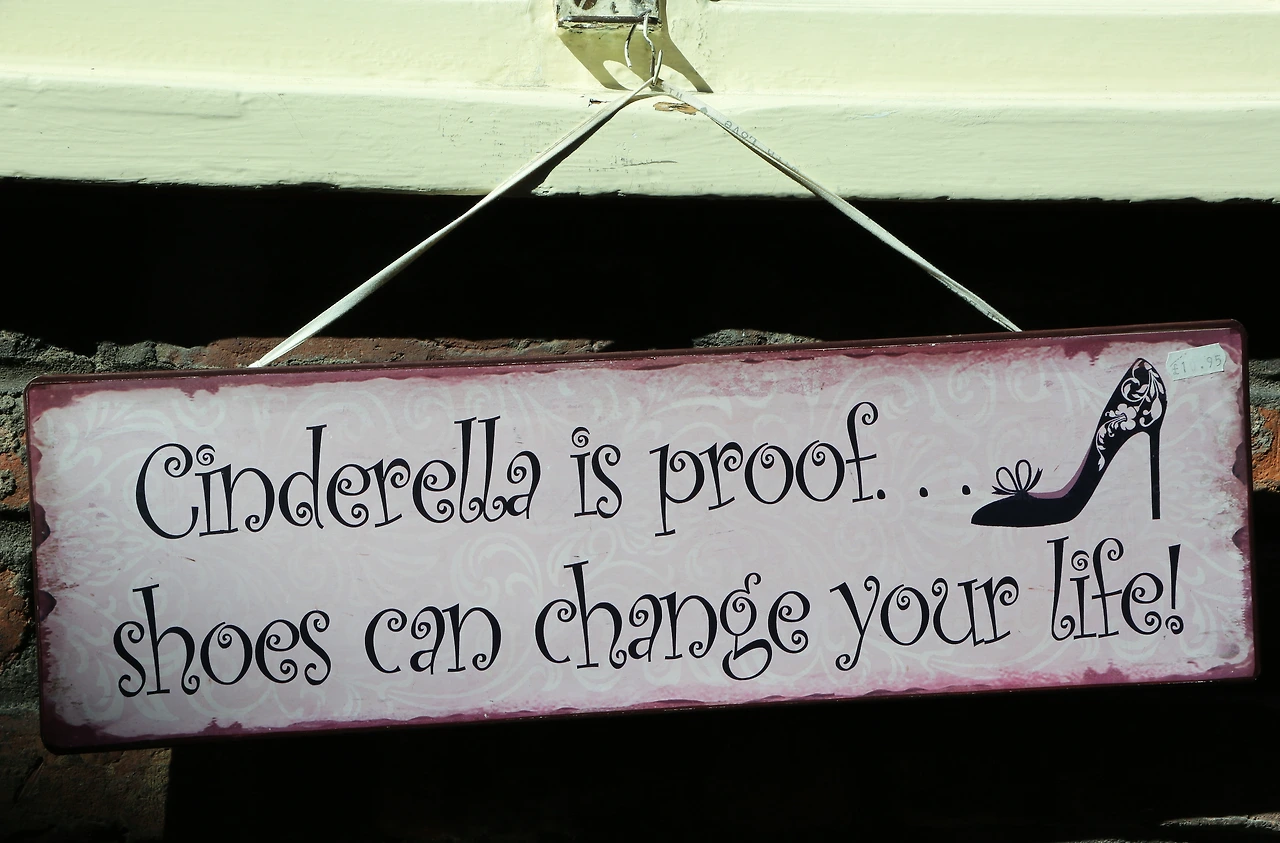 Cinderella is proof. . .
shoes can change your life!